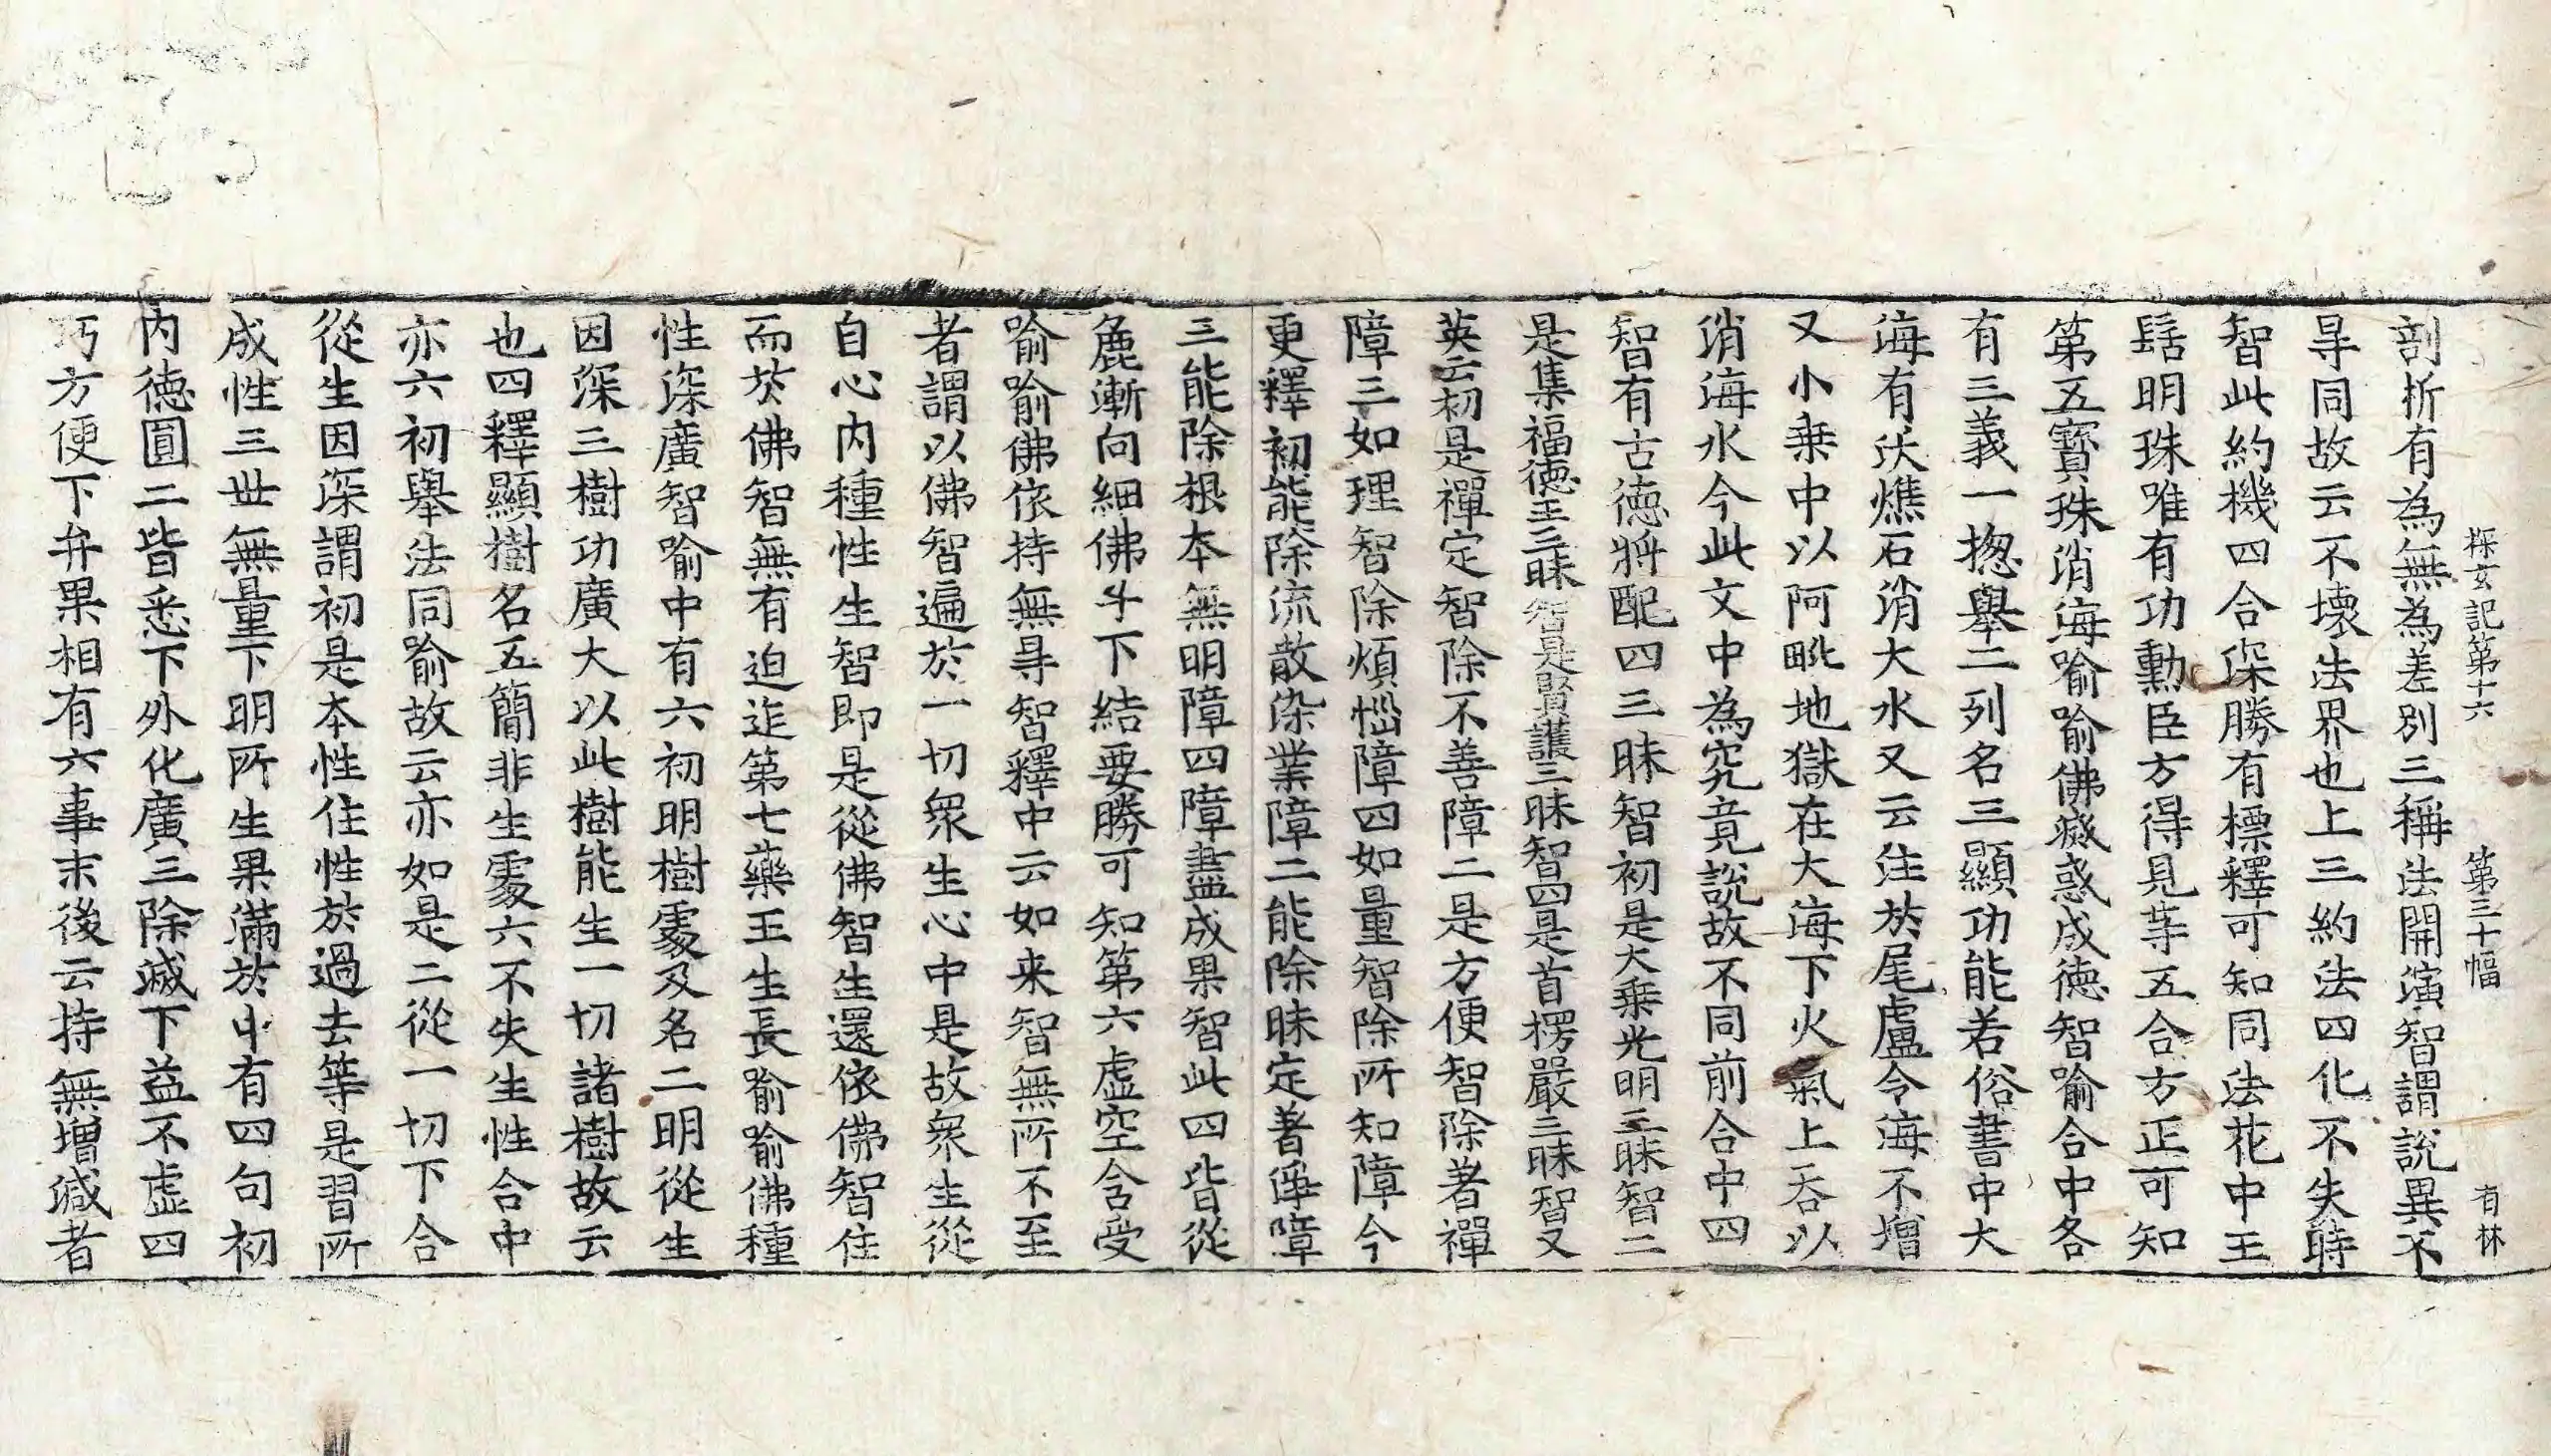 探玄記第十六 第三十幅 有林
剖折有為無為差別三稱法開演智謂說異不
㝵同故云不壞法界也上三約法四化不失時
智此約機四合深勝有標釋可知同法花中王
髻明珠唯有功勳臣方得見等五合方正可知
第五寳珠消海喻喻佛滅惑成徳智喻合中各
有三義一揔舉二列名三顯功能若俗書中大
海有沃燋石消大水又云注於尾盧令海不增
又小乗中以阿毗地獄在大海下火氣上吞以
消海水今此文中為究竟說故不同前合中四
智有古徳將配四三昧智初是大乗光明三昧智二
是集福徳王三昧智是賢護三昧智四是首楞嚴三昧智又
英云初是禪定智除不善障二是方便智除著禪
障三如理智除煩惱障四如量智除所知障今
更釋初能除流散染業障二能除昧定著淨障
三能除根本無明障四障盡成果智此四皆從
麁漸向細佛子下結要勝可知第六虛空含受
喻喻佛依持無㝵智釋中云如来智無所不至
者謂以佛智遍於一切衆生心中是故衆生從
自心内種性生智即是從佛智生還依佛智住
而於佛智無有迫迮第七藥王生長喻喻佛種
性深廣智喻中有六初明樹處及名二明從生
因深三樹功廣大以此樹能生一切諸樹故云
也四釋顯樹名五簡非生處六不失生性合中
亦六初舉法同喻故云亦如是二從一切下合
從生因深謂初是本性住性於過去等是習所
成性三世無量下明所生果滿於中有四句初
内徳圓二皆悉下外化廣三除滅下益不虛四
巧方便下弁果相有六事末後云持無增減者